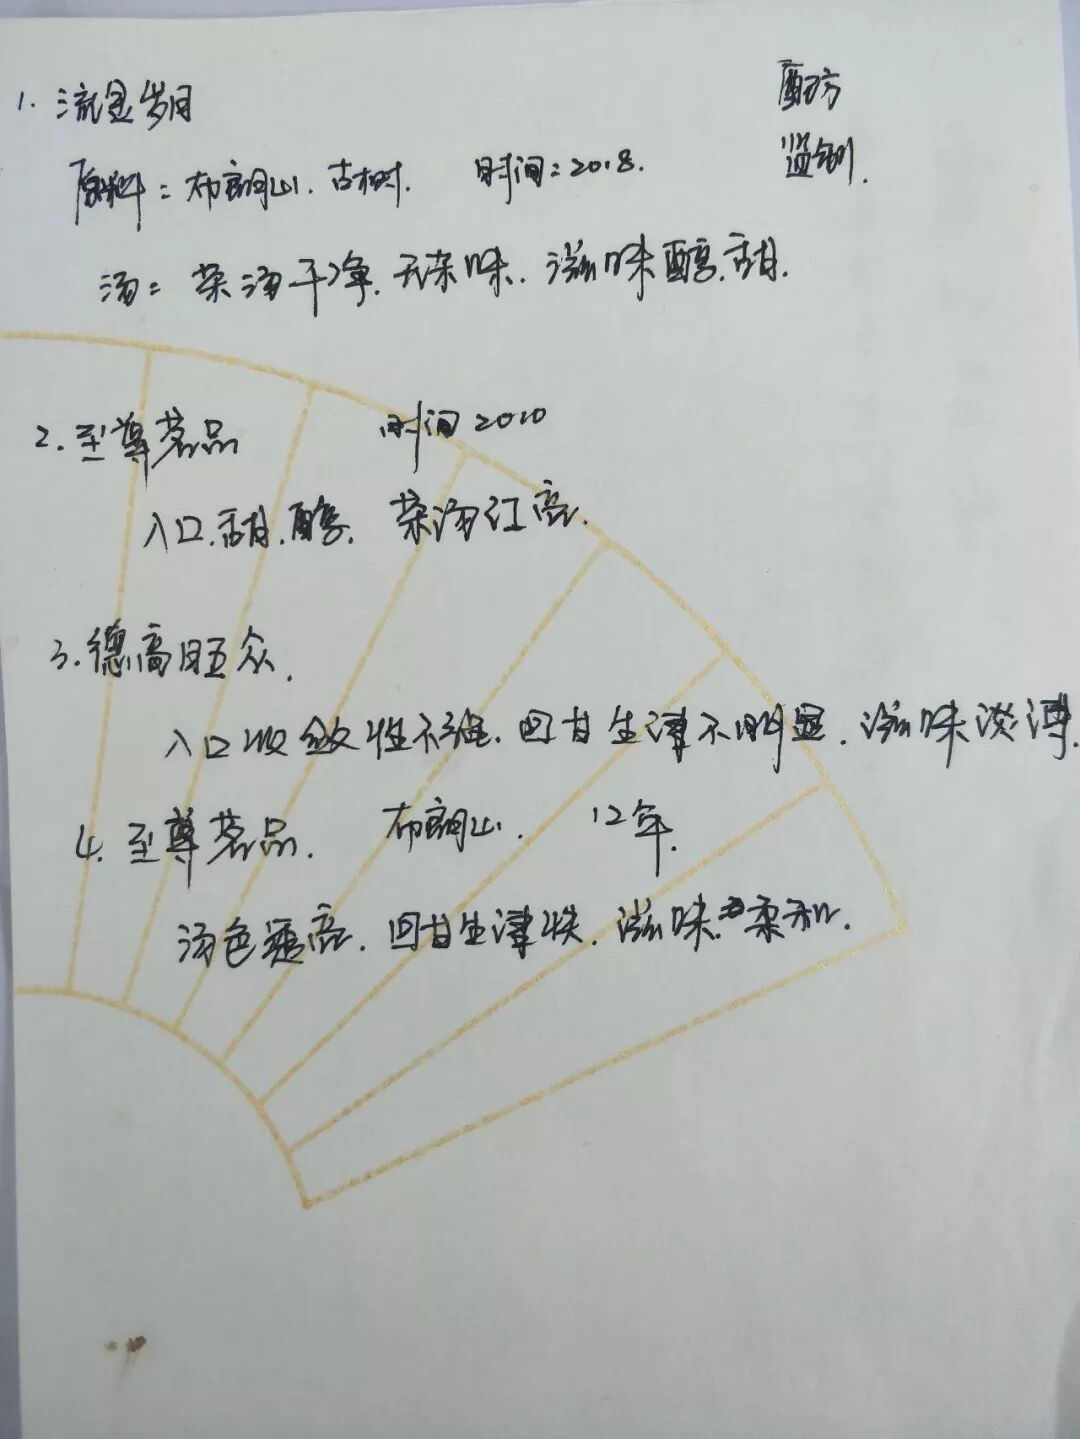 配方
1. 流金岁月
监制.
原料: 布朗山. 古树. 时间: 2018.
汤: 茶汤干净. 无杂味. 滋味醇. 甜.
2. 至尊茗品 时间 2010
入口. 甜. 醇. 茶汤红亮.
3. 德高旺众.
入口收敛性不强. 回甘生津不明显. 滋味淡薄.
4. 至尊茗品. 布朗山. 12年.
汤色 亮. 回甘生津快. 滋味 柔和.